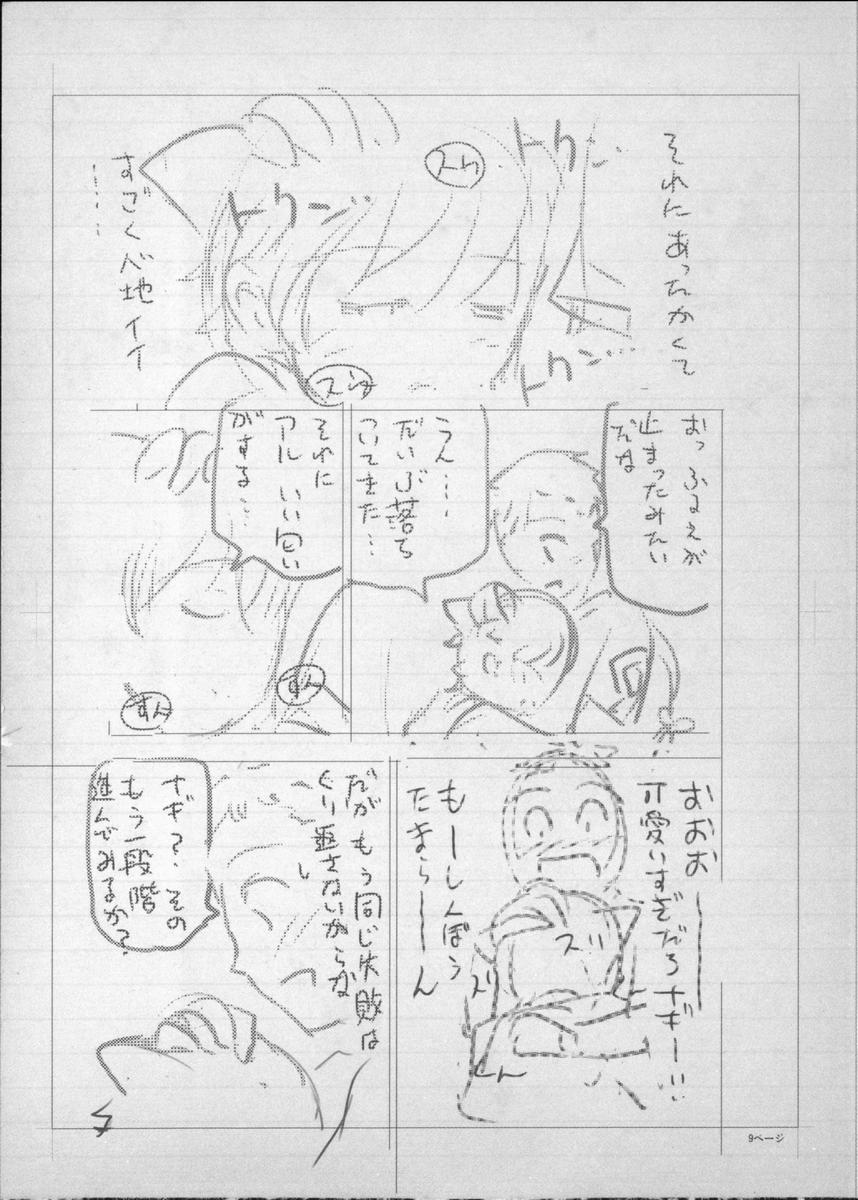 それにあったかくて
トクン…
トクン…
スウ
トクン…
スン
すごく心地イイ
………
おっ ふるえが
止まったみたい
だね
うん…
だいぶ落ち
ついてきた…
それに
アル いい匂い
がする…
すん
すん
おおお――
可愛いすぎだろ ナギー…
もーしんぼう
たまらーん
ズリ
ズリ
だが もう同じ失敗は
くり返さないからな
し
ナギ? その
もう一段階
進んでみるか?
9ページ